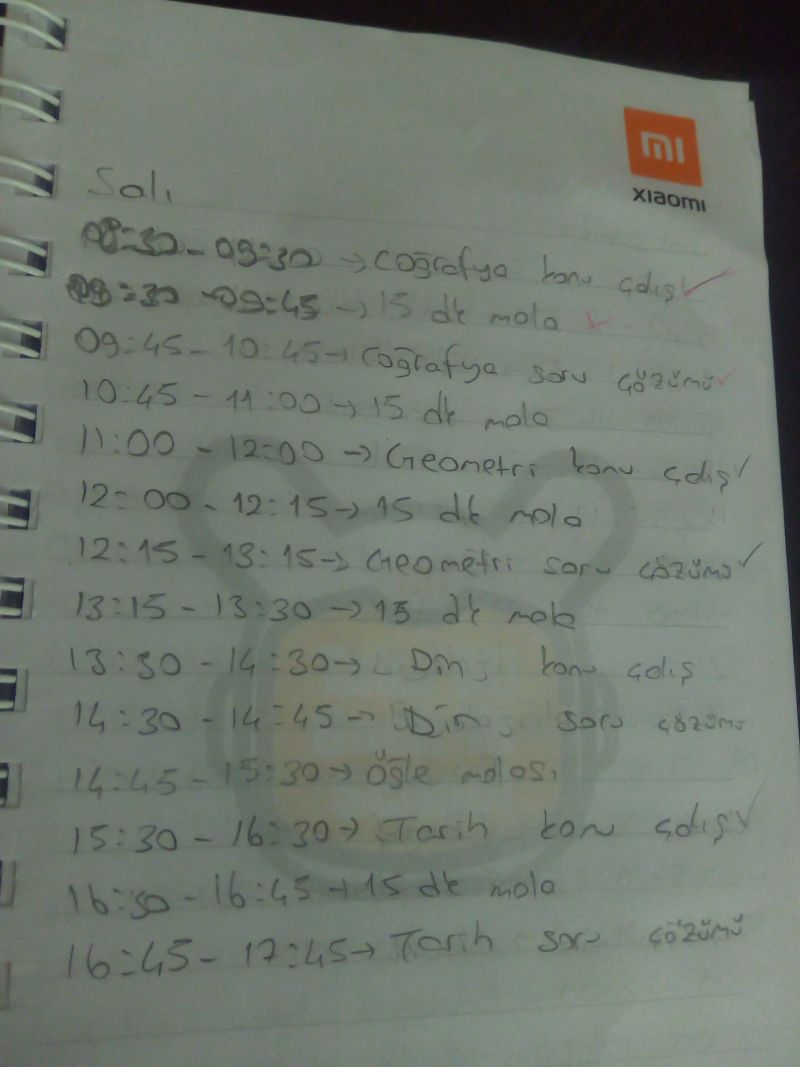 mi
xiaomi
Salı
08:30 - 09:30 → coğrafya konu çalış ✓
09:30 - 09:45 → 15 dk mola ✓
09:45 - 10:45 → coğrafya soru çözümü ✓
10:45 - 11:00 → 15 dk mola
11:00 - 12:00 → Geometri konu çalış ✓
12:00 - 12:15 → 15 dk mola
12:15 - 13:15 → Geometri soru çözümü ✓
13:15 - 13:30 → 15 dk mola
13:30 - 14:30 → Din konu çalış
14:30 - 14:45 → Din soru çözümü
14:45 - 15:30 → Öğle molası
15:30 - 16:30 → Tarih konu çalış ✓
16:30 - 16:45 → 15 dk mola
16:45 - 17:45 → Tarih soru çözümü